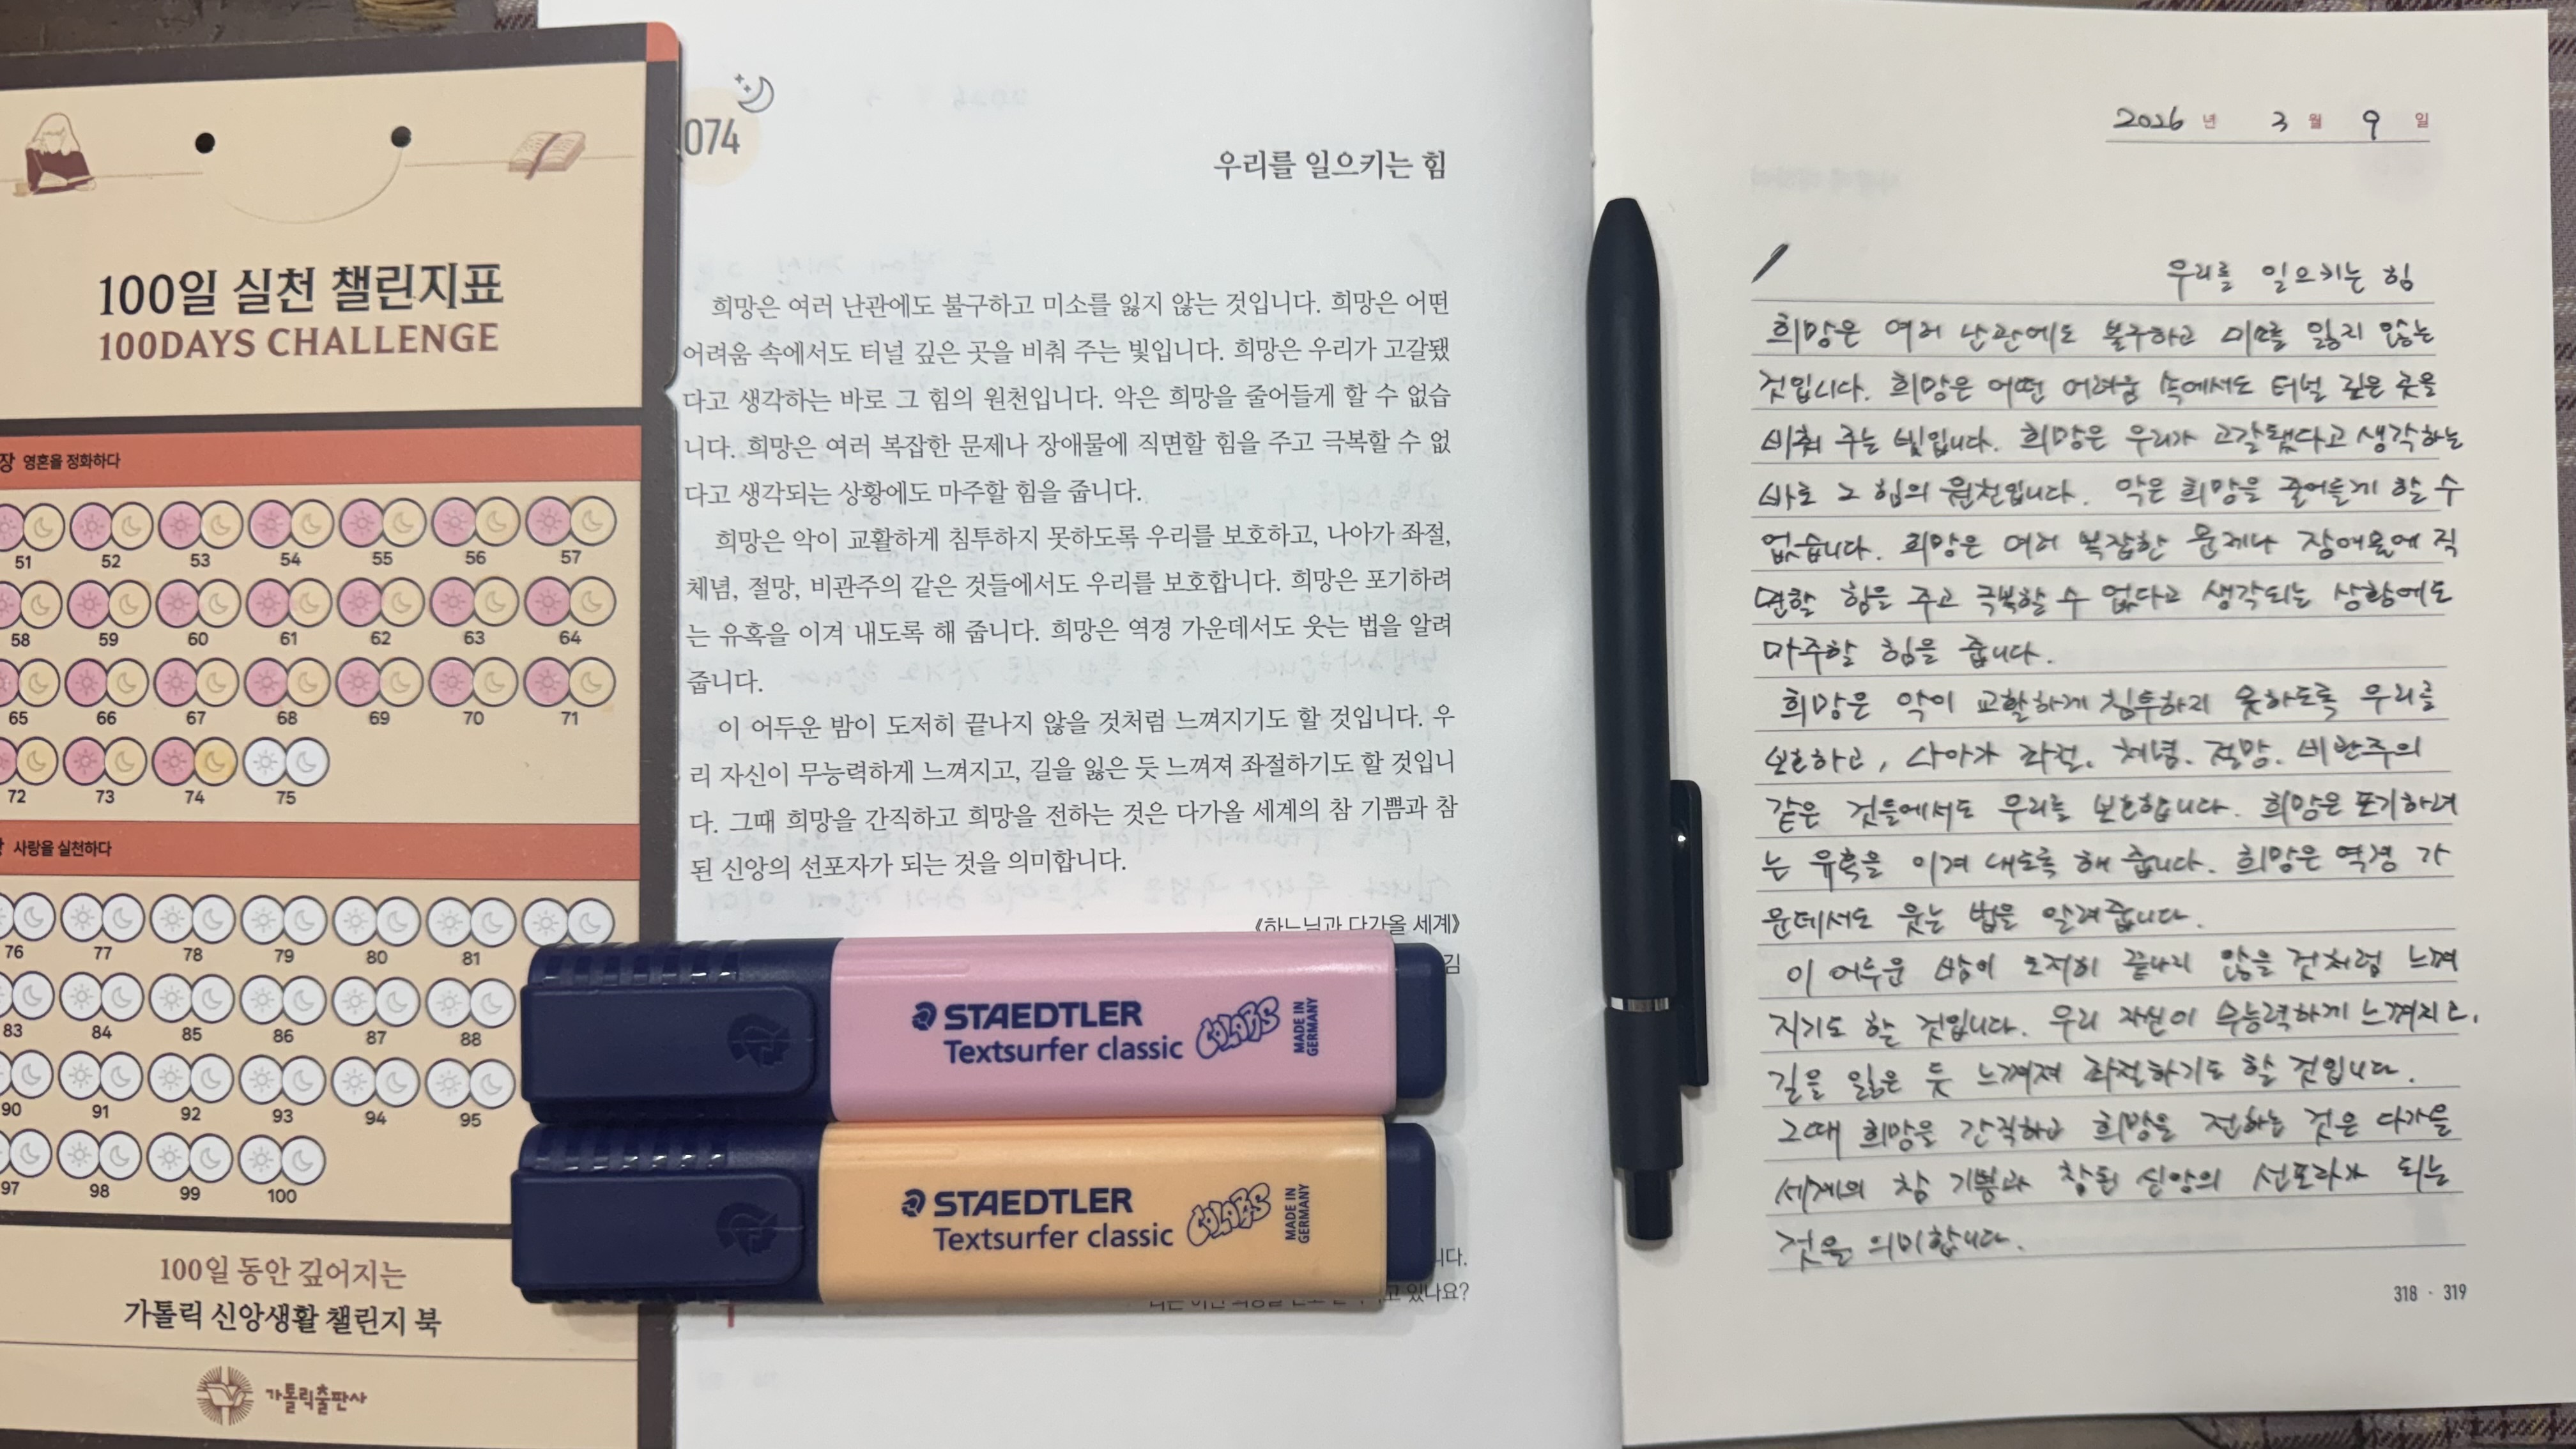 100일 실천 챌린지표
100DAYS CHALLENGE
장 영혼을 정화하다
51 52 53 54 55 56 57
58 59 60 61 62 63 64
65 66 67 68 69 70 71
72 73 74 75
사랑을 실천하다
76 77 78 79 80 81
83 84 85 86 87 88
90 91 92 93 94 95
97 98 99 100
100일 동안 깊어지는
가톨릭 신앙생활 챌린지 북
가톨릭출판사
074
우리를 일으키는 힘
희망은 여러 난관에도 불구하고 미소를 잃지 않는 것입니다. 희망은 어떤
어려움 속에서도 터널 깊은 곳을 비춰 주는 빛입니다. 희망은 우리가 고갈됐
다고 생각하는 바로 그 힘의 원천입니다. 악은 희망을 줄어들게 할 수 없습
니다. 희망은 여러 복잡한 문제나 장애물에 직면할 힘을 주고 극복할 수 없
다고 생각되는 상황에도 마주할 힘을 줍니다.
희망은 악이 교활하게 침투하지 못하도록 우리를 보호하고, 나아가 좌절,
체념, 절망, 비관주의 같은 것들에서도 우리를 보호합니다. 희망은 포기하려
는 유혹을 이겨 내도록 해 줍니다. 희망은 역경 가운데서도 웃는 법을 알려
줍니다.
이 어두운 밤이 도저히 끝나지 않을 것처럼 느껴지기도 할 것입니다. 우
리 자신이 무능력하게 느껴지고, 길을 잃은 듯 느껴져 좌절하기도 할 것입니
다. 그때 희망을 간직하고 희망을 전하는 것은 다가올 세계의 참 기쁨과 참
된 신앙의 선포자가 되는 것을 의미합니다.
《하느님과 다가올 세계》
김
니다.
고 있나요?
STAEDTLER
Textsurfer classic
COLORS
MADE IN
GERMANY
STAEDTLER
Textsurfer classic
COLORS
MADE IN
GERMANY
2026 년 3 월 9 일
우리를 일으키는 힘
희망은 여러 난관에도 불구하고 미소를 잃지 않는
것입니다. 희망은 어떤 어려움 속에서도 터널 깊은 곳을
비춰 주는 빛입니다. 희망은 우리가 고갈됐다고 생각하는
바로 그 힘의 원천입니다. 악은 희망을 줄어들게 할 수
없습니다. 희망은 여러 복잡한 문제나 장애물에 직
면할 힘을 주고 극복할 수 없다고 생각되는 상황에도
마주할 힘을 줍니다.
희망은 악이 교활하게 침투하지 못하도록 우리를
보호하고, 나아가 좌절, 체념, 절망, 비관주의
같은 것들에서도 우리를 보호합니다. 희망은 포기하려
는 유혹을 이겨 내도록 해 줍니다. 희망은 역경 가
운데서도 웃는 법을 알려줍니다.
이 어두운 밤이 도저히 끝나지 않을 것처럼 느껴
지기도 할 것입니다. 우리 자신이 무능력하게 느껴지고,
길을 잃은 듯 느껴져 좌절하기도 할 것입니다.
그때 희망을 간직하고 희망을 전하는 것은 다가올
세계의 참 기쁨과 참된 신앙의 선포자가 되는
것을 의미합니다.
318 · 319